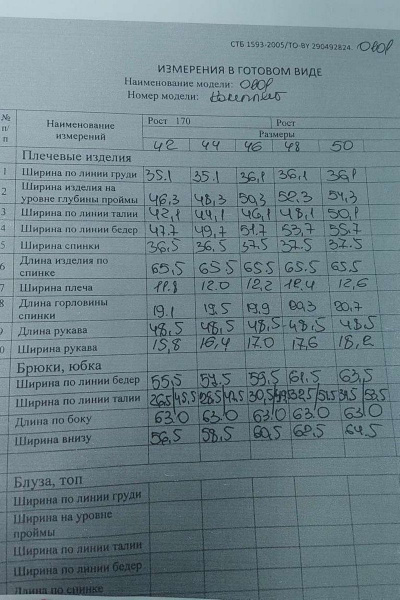 СТБ 1593-2005/ТО-BY 290492824.
ИЗМЕРЕНИЯ В ГОТОВОМ ВИДЕ
Наименование модели:
Номер модели: Комплект
№ п/п Наименование измерений Рост 170 Рост
Размеры
42 44 46 48 50
Плечевые изделия
1 Ширина по линии груди 35.1 35.1 36,1 36,1 36,1
2 Ширина изделия на уровне глубины проймы 46,3 48,3 50,3 52,3 54,3
3 Ширина по линии талии 42,1 44,1 46,1 48,1 50,1
4 Ширина по линии бедер 47.7 49,7 51.7 53,7 55.7
5 Ширина спинки 36,5 36,5 37.5 37.5 37.5
6 Длина изделия по спинке 65,5 65.5 65.5 65.5 65.5
7 Ширина плеча 11.8 12.0 12,2 12,4 12,6
8 Длина горловины спинки 19.1 19.5 19.9 20,3 20,7
9 Длина рукава 48,5 48,5 48,5 48,5 48,5
0 Ширина рукава 15,8 16,4 17.0 17,6 18,2
Брюки, юбка
Ширина по линии бедер 55,5 57,5 59,5 61,5 63,5
Ширина по линии талии 26,5 45,5 28,5 47,5 30,5 49,5 32,5 51,5 34,5 53,5
Длина по боку 63.0 63.0 63.0 63.0 63.0
Ширина внизу 56,5 58,5 60,5 62,5 64,5
Блуза, топ
Ширина по линии груди
Ширина на уровне
проймы
Ширина по линии талии
Ширина по линии бедер
Длина по спинке